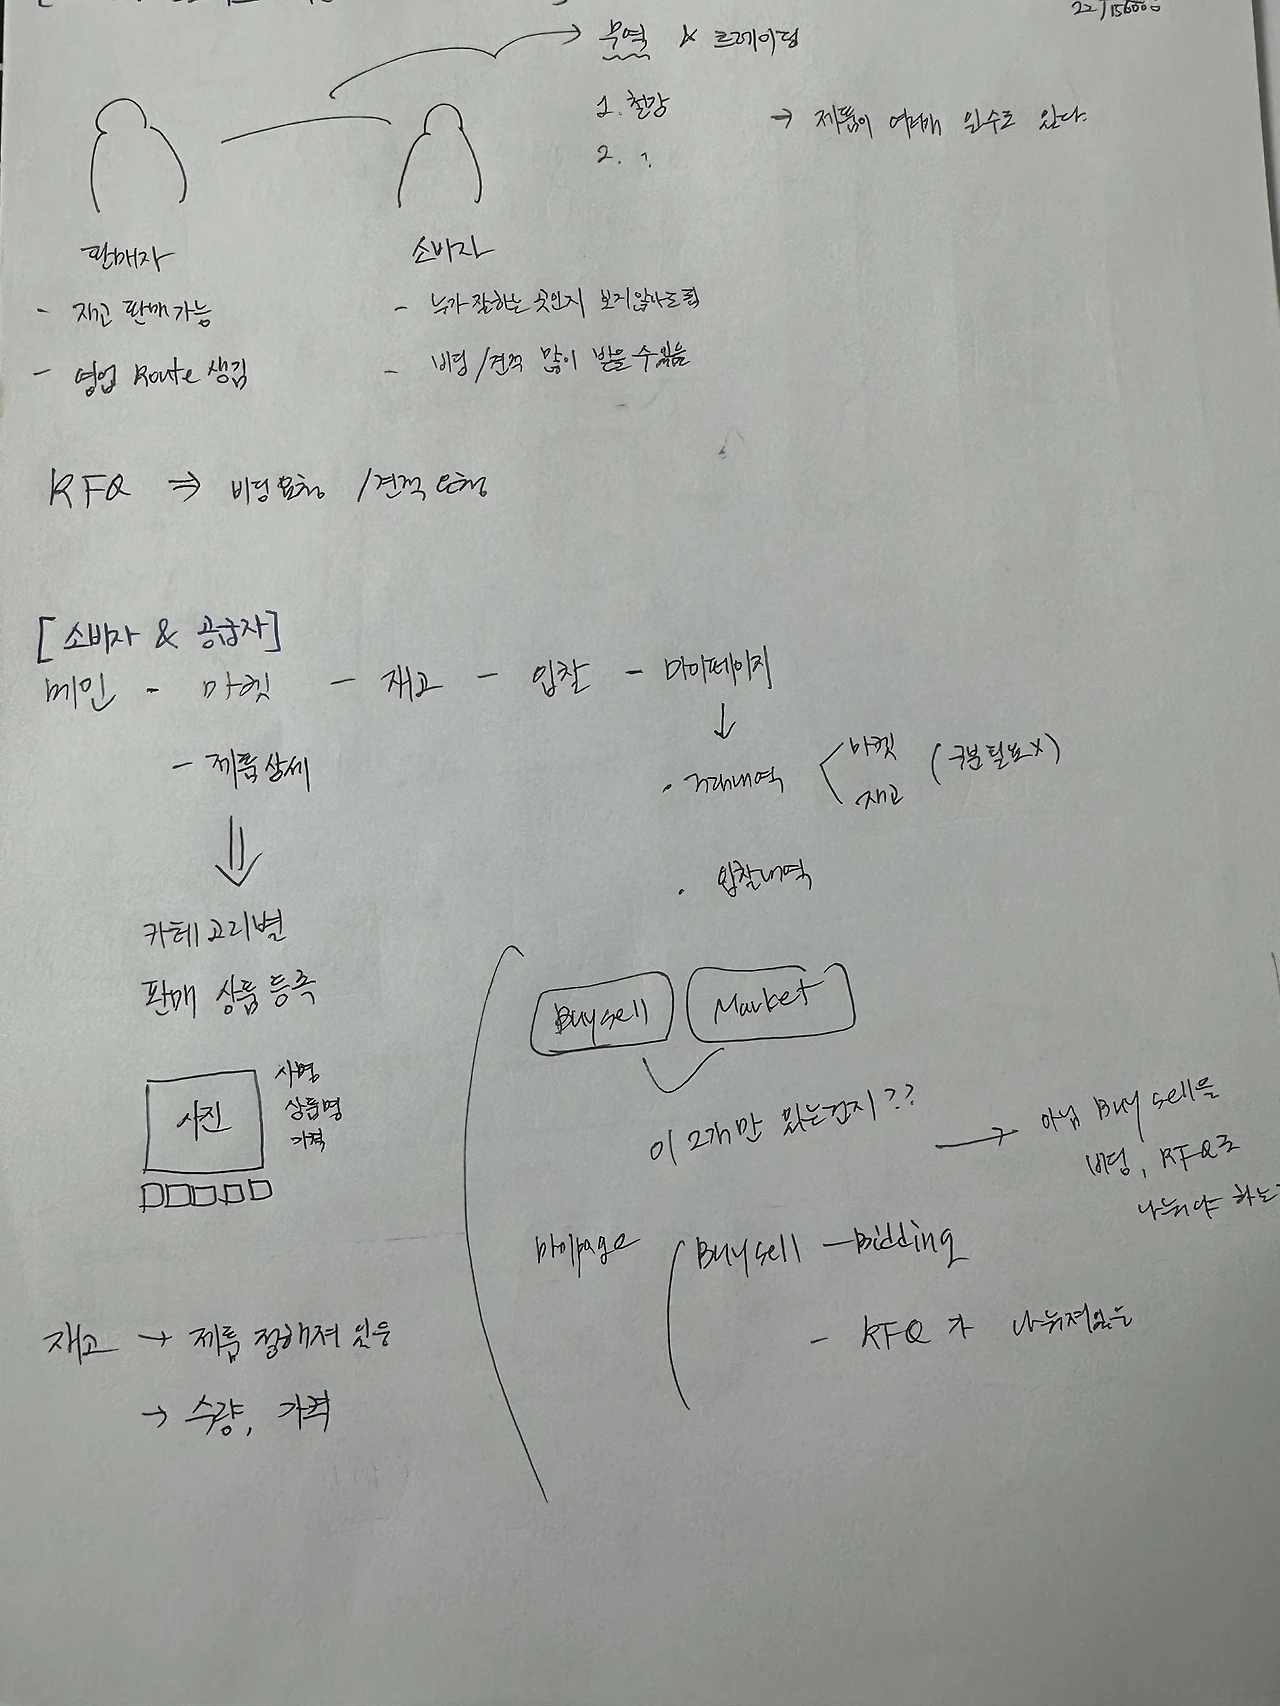 무역 & 트레이딩
1. 철강
2. ?
→ 제품이 여러개 일수도 있다.
판매자
- 재고 판매 가능
- 영업 Route 생김
소비자
- 누가 잘하는 곳인지 보지 않아도 됨
- 비딩/견적 많이 받을 수 있음
RFQ ⇒ 비딩 요청 / 견적 요청
[소비자 & 공급자]
메인 - 마켓 - 재고 - 입찰 - 마이페이지
- 제품 상세
카테고리별
판매 상품 등록
사진
사명
상품명
가격
재고 → 제품 정해져 있음
→ 수량, 가격
· 거래내역
마켓
재고
(구분 필요X)
· 입찰내역
Buy sell
Market
이 2개만 있는건지??
→ 아님 Buy sell을
비딩, RFQ로
나눠야 하는
마이page
Buy sell - Bidding
- RFQ 가 나눠져있음